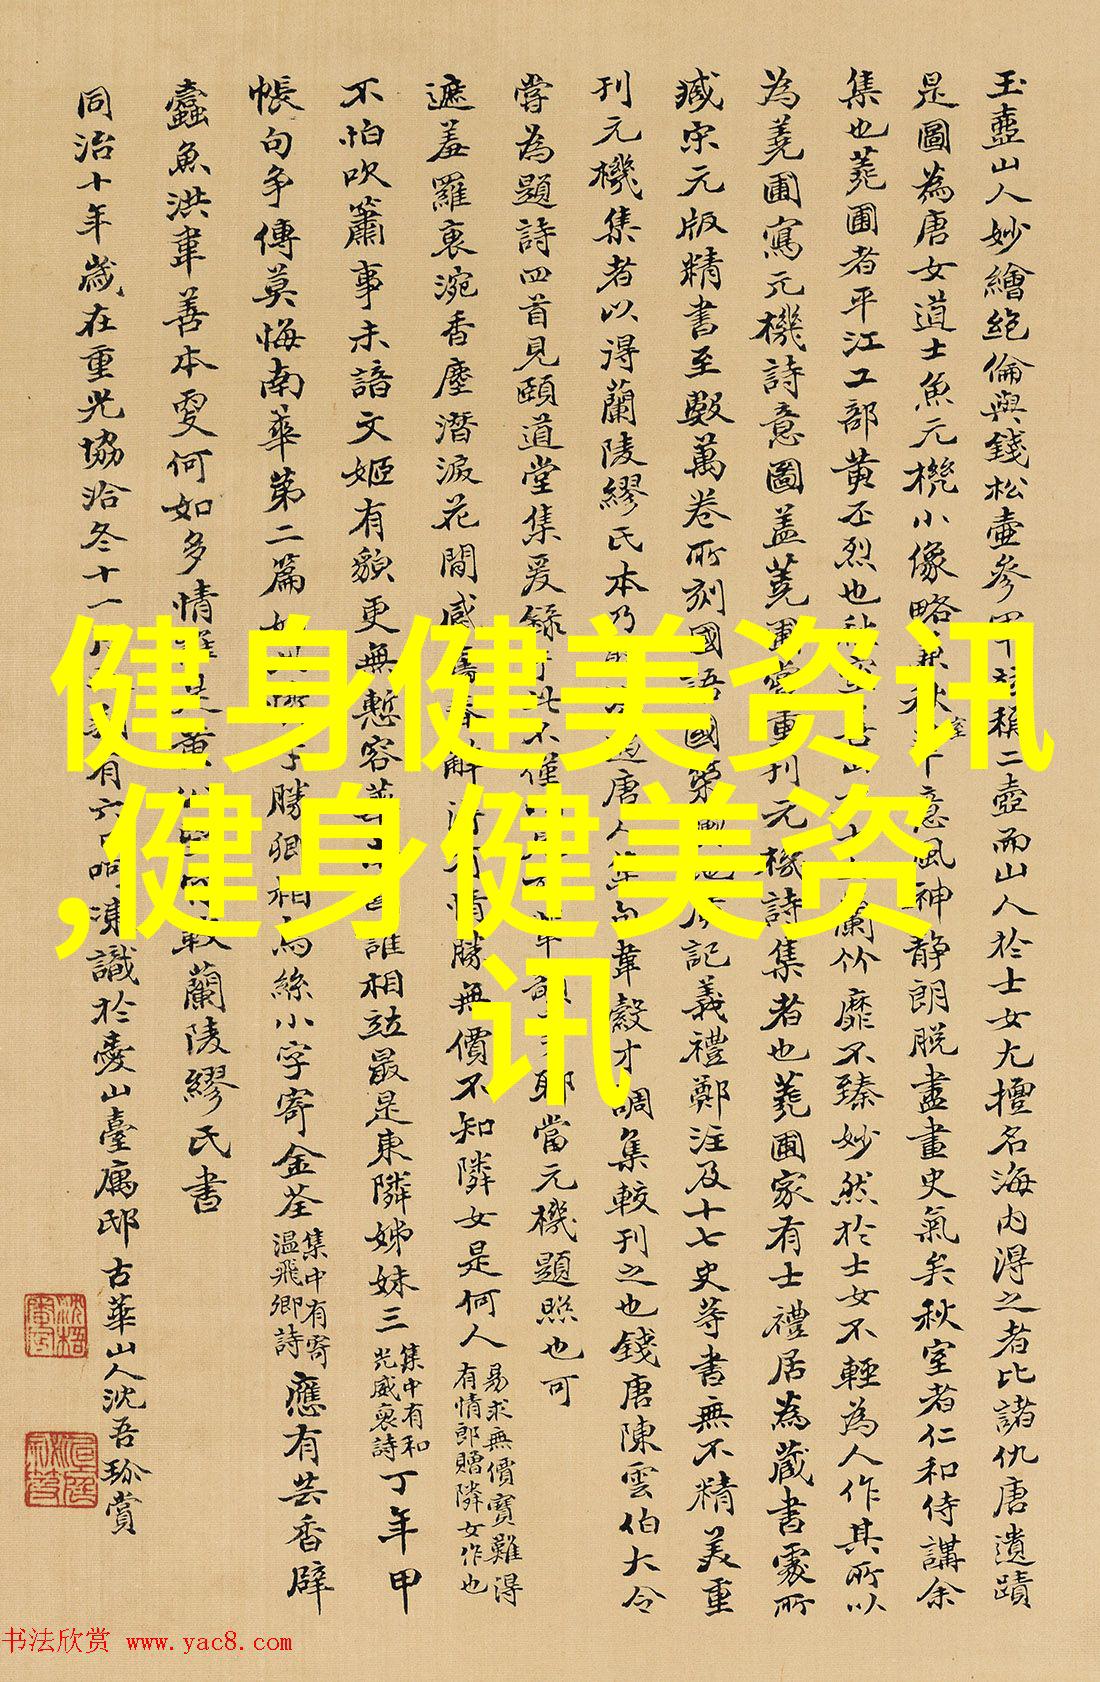 玉壺山人妙繪絕倫與錢松壺參
稱二壺而山人於士女尤擅名海內得之者比諸仇唐遺蹟
是圖為唐女道士魚元機小像略
意風神靜朗脫盡畫史氣矣秋室者仁和侍講余
集也蕘圃者平江工部黃丕烈也
蘭竹靡不臻妙然於士女不輕為人作其所以
為蕘圃寫元機詩意圖蓋蕘圃嘗重刊元機詩集者也蕘圃家有士禮居為藏書處所
臧宋元版精書至數萬卷所刻國語國策
記義禮鄭注及十七史等書無不精美重
刊元機集者以得蘭陵繆氏本乃
唐人
韋縠才調集較刊之也錢唐陳雲伯大令
嘗為題詩四首見頤道堂集爰錄于此不僅
當元機題照也可
遮羞羅裏涴香塵潛淚花間感舊春解
有情勝無價不知隣女是何人
易求無價寶難得
有情郎贈隣女作也
不怕吹簫事未諳文姬有貌更無慙容華
誰相竝最是東隣姊妹三
集中有和
光威裒詩
丁年甲
帳句爭傳莫悔南華第二篇
勝卿相為絲小字寄金荃
集中有寄
溫飛卿詩
應有芸香辟
蠹魚洪韋善本更何如多情
蘭陵繆氏書
同治十年歲在重光協洽冬十一
有六日呵凍識於臺山臺廡邸古華山人沈吾珎賞
健身健美资讯
,健身健美资
讯
书法欣赏 www.yac8.com